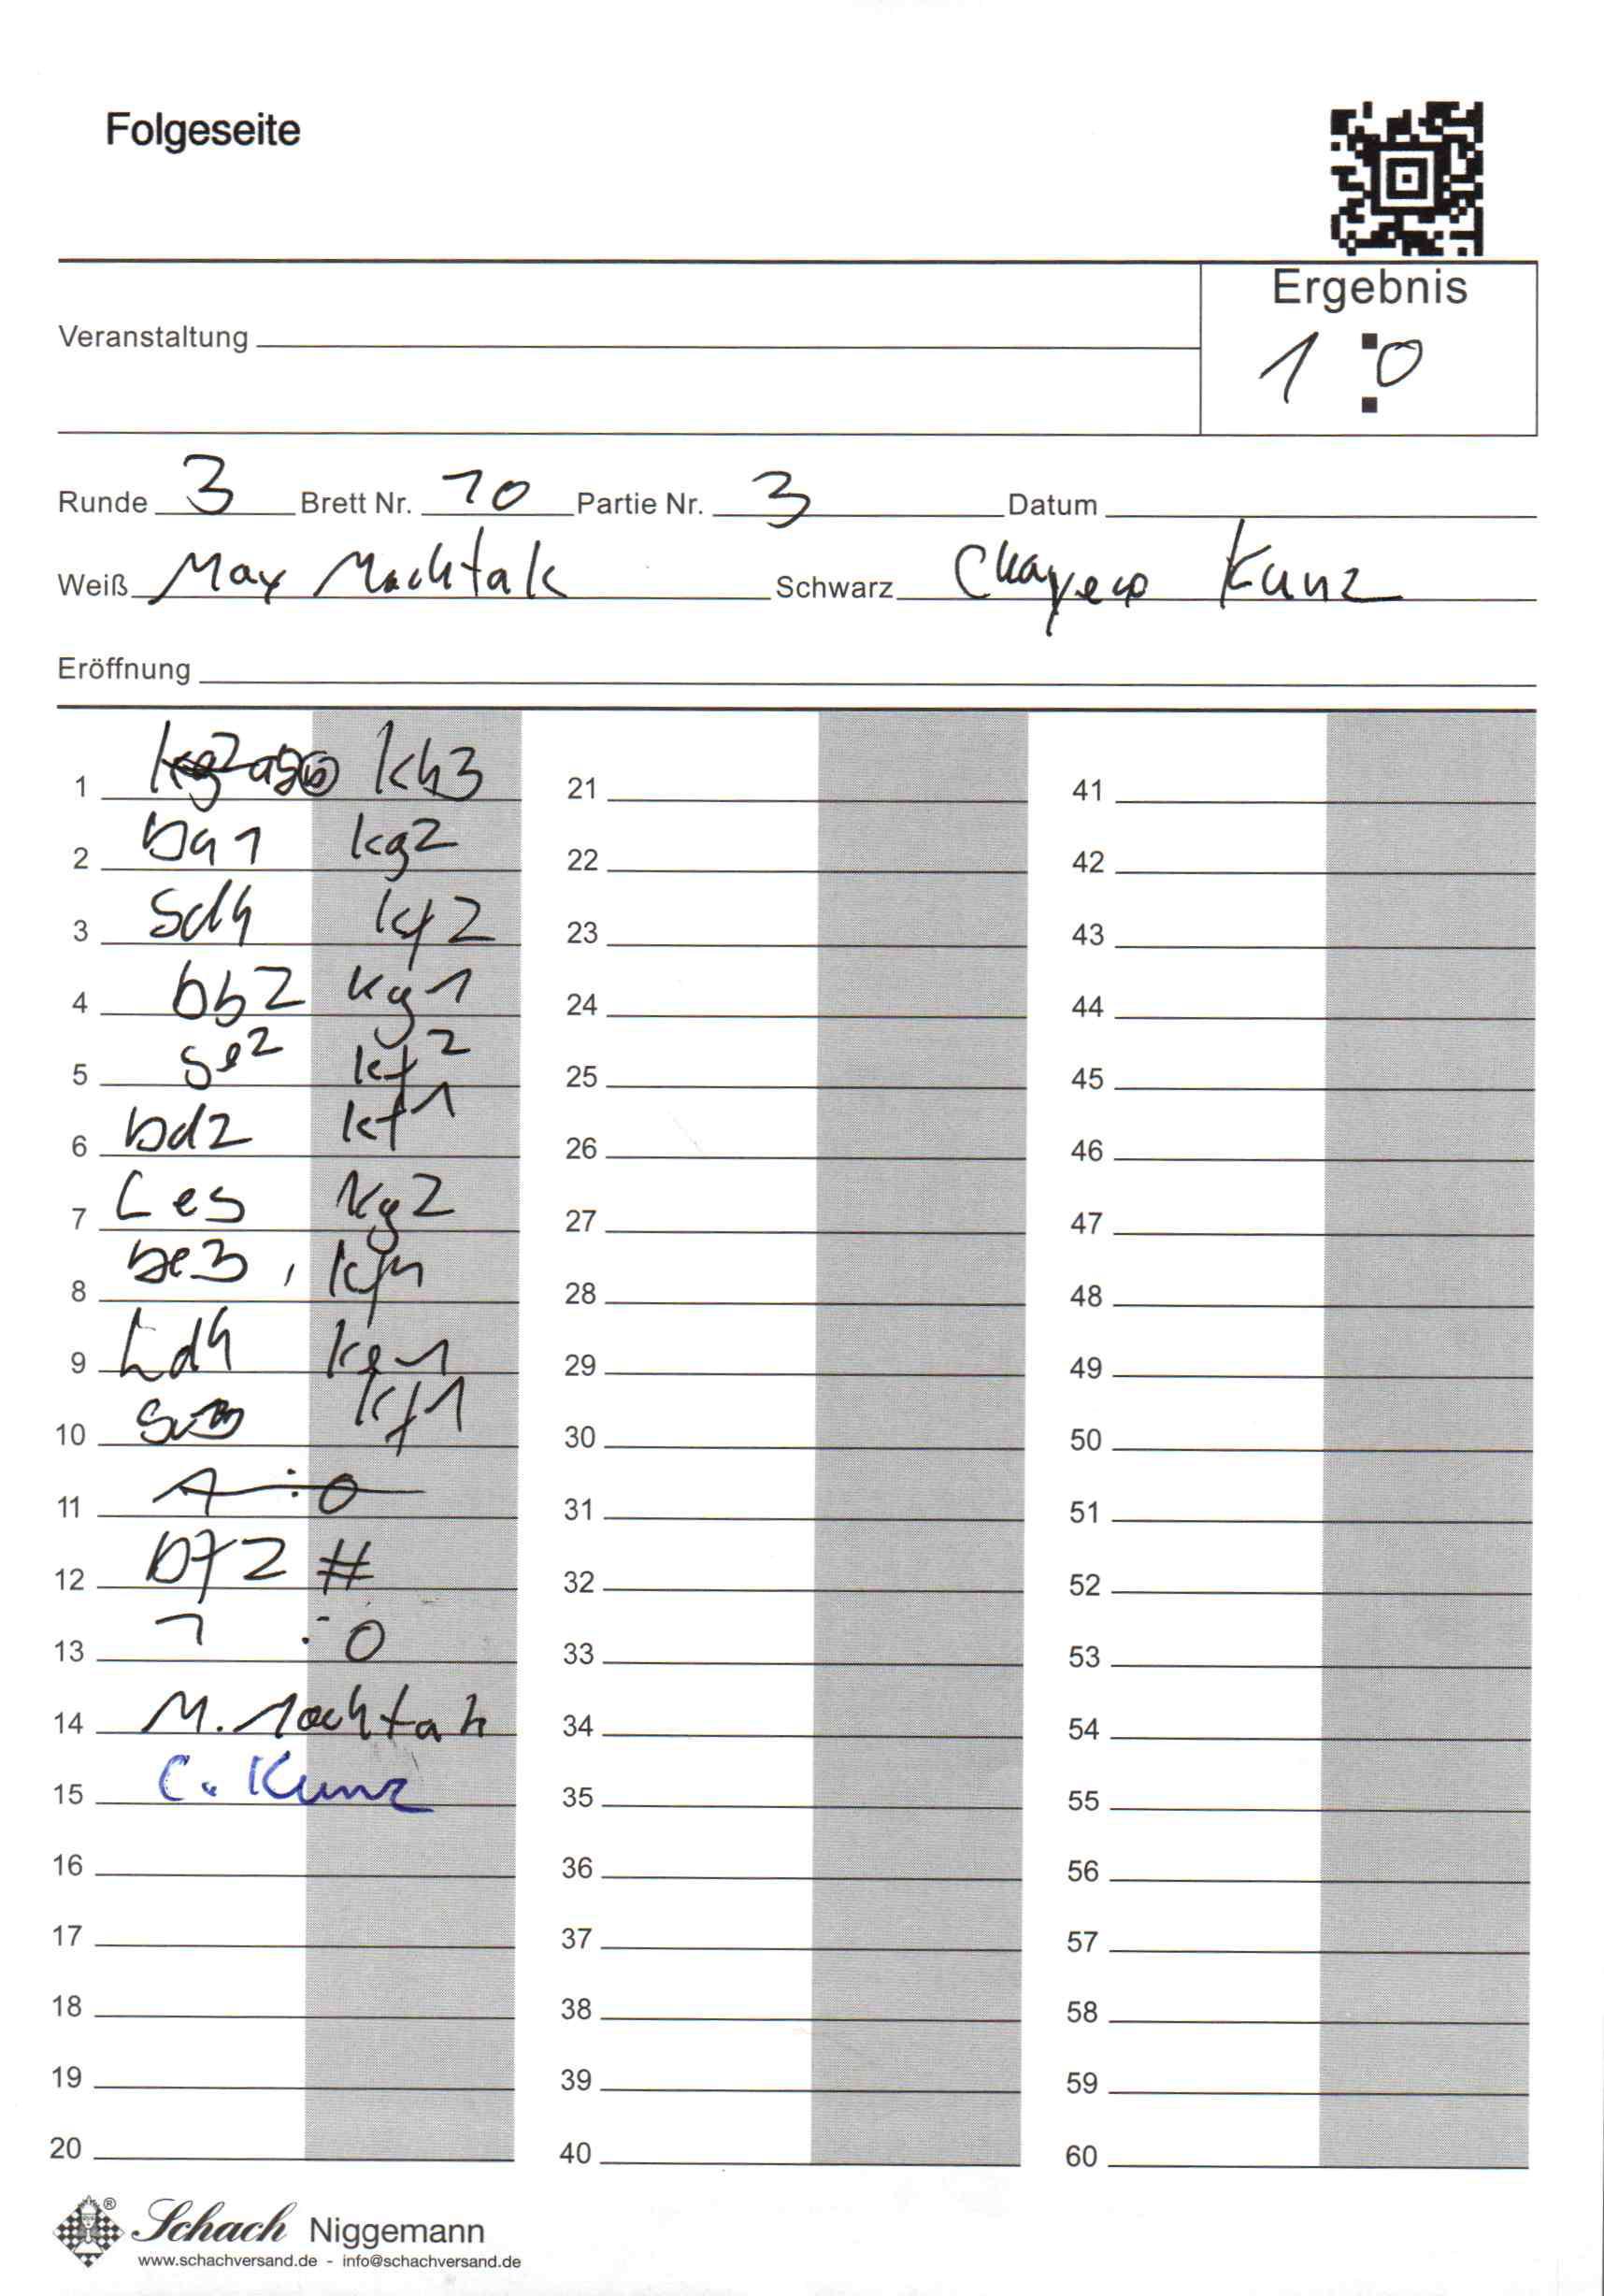 Folgeseite
Ergebnis
1 : 0
Veranstaltung
Runde 3 Brett Nr. 10 Partie Nr. 3 Datum
Weiß Max Machtak Schwarz Kunz
Eröffnung
1 kh3 21 41
2 Da1 kg2 22 42
3 Sd4 kf2 23 43
4 Db2 kg1 24 44
5 Se2 kf2 25 45
6 Dd2 kf1 26 46
7 Le5 kg2 27 47
8 De3, kf1 28 48
9 Ld4 ke1 29 49
10 kf1 30 50
11 1 : 0 31 51
12 Df2 # 32 52
13 1 : 0 33 53
14 M. Machtak 34 54
15 C. Kunz 35 55
16 36 56
17 37 57
18 38 58
19 39 59
20 40 60
® Schach Niggemann
www.schachversand.de - info@schachversand.de